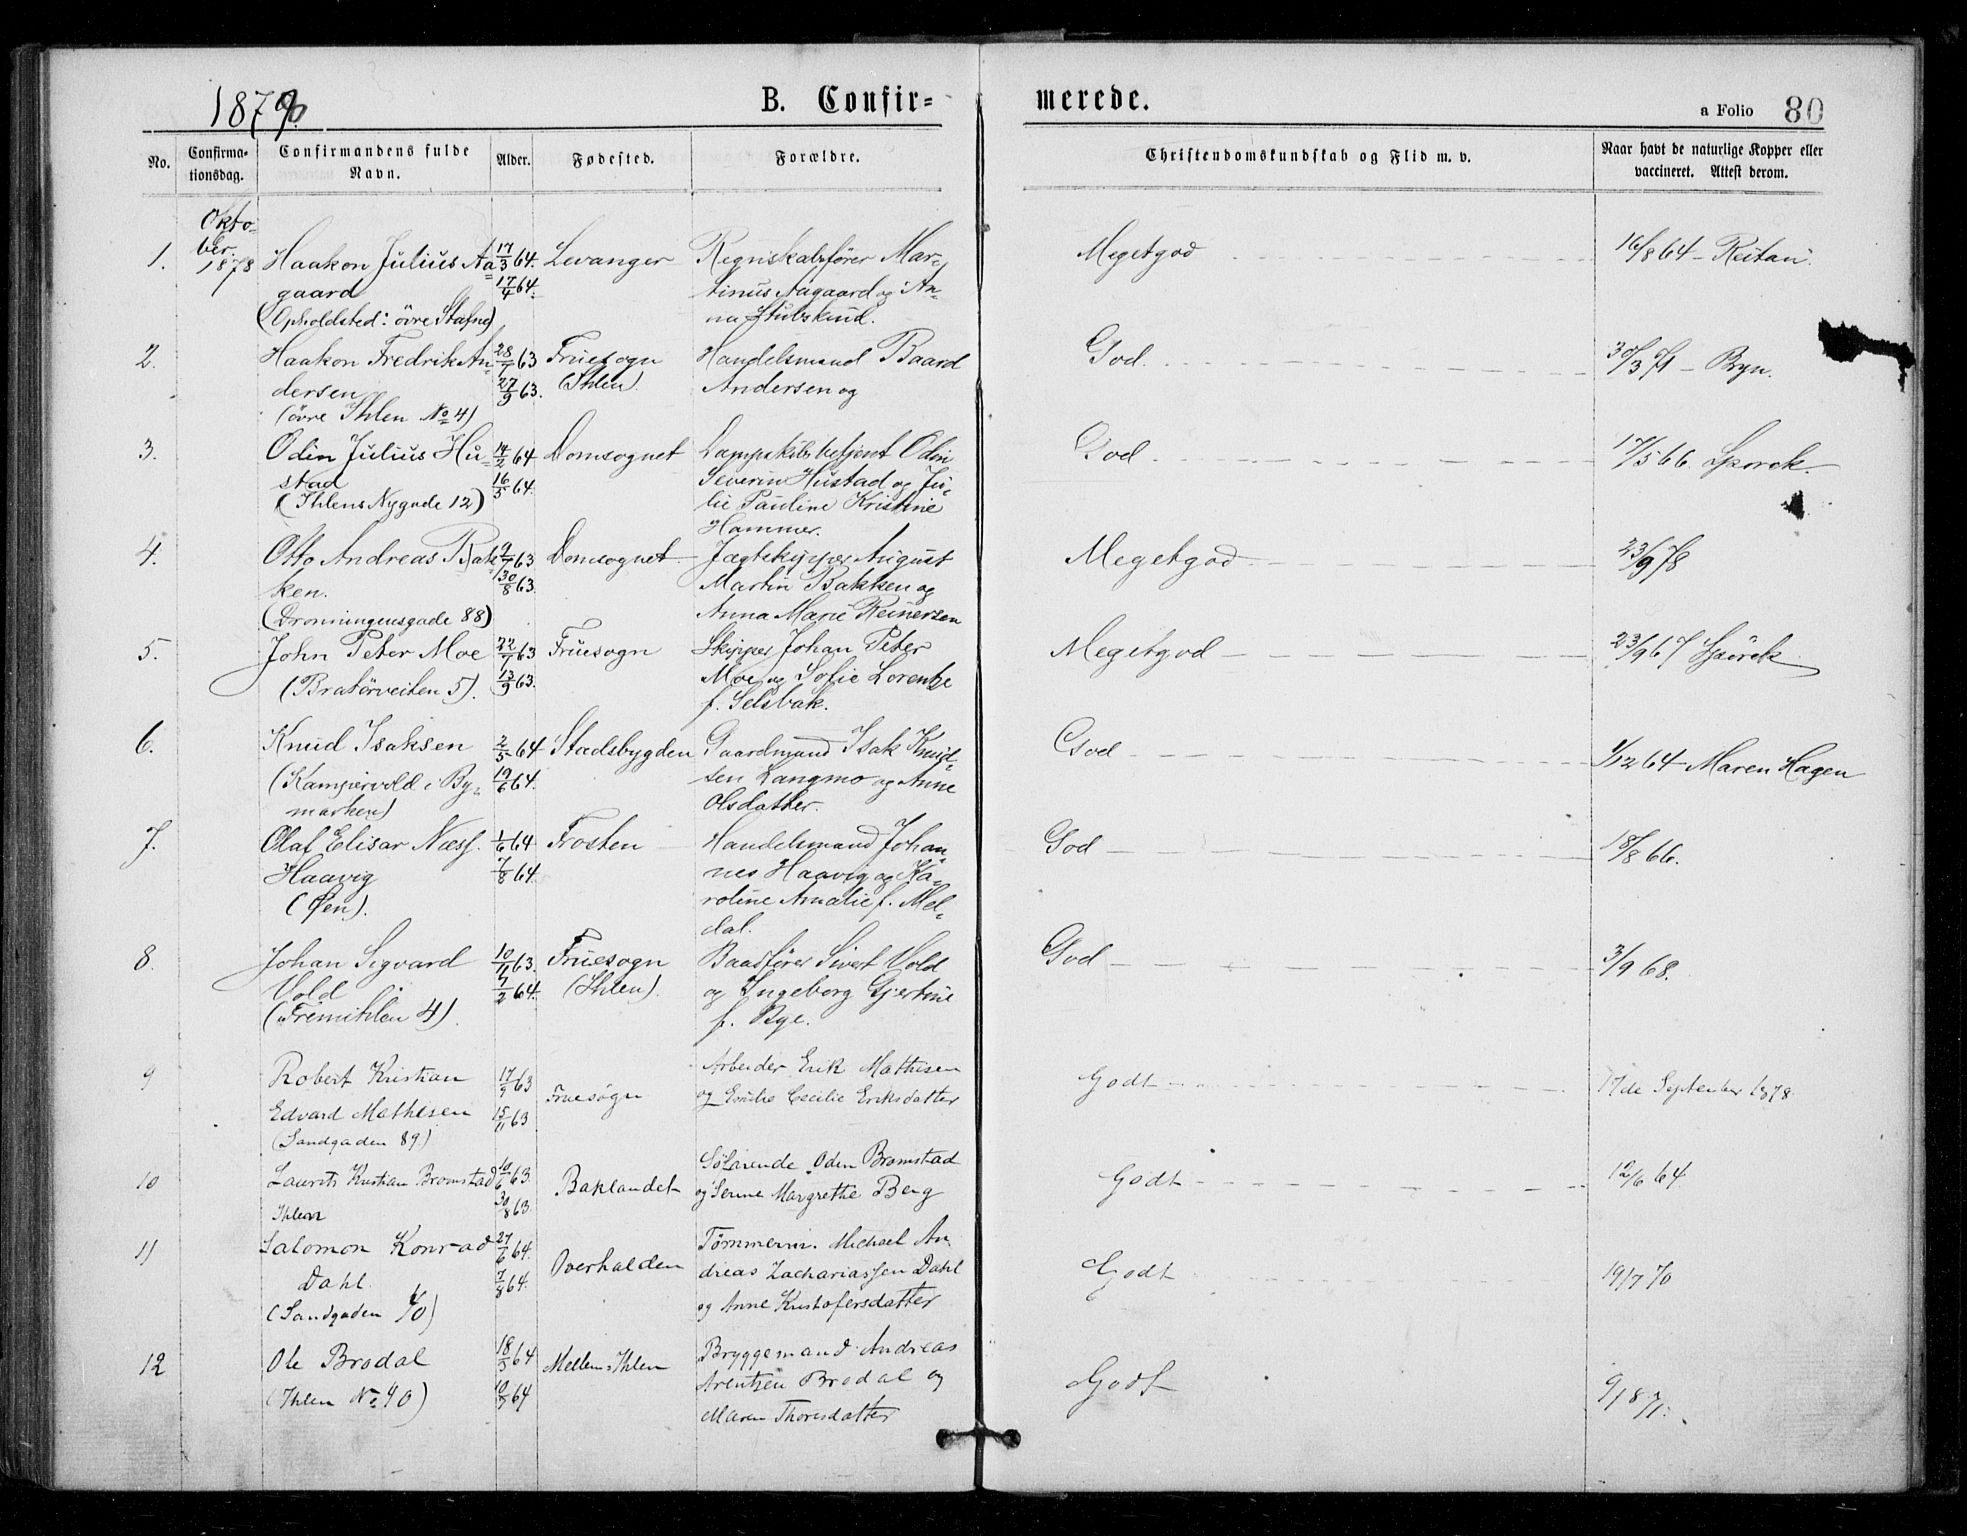 1879.
B. Confirmerede.
a Folio 80
No. Confirmationsdag. Confirmandens fulde Navn. Alder. Fødested. Forældre. Christendomskundskab og Flid m. v. Naar havt de naturlige Kopper eller vaccineret. Attest derom.
Okto-
ber.
1878
1. Haakon Julius Aa= 17/3 64. Levanger Regnskabsfører Mar- Megetgod 16/8 64 - Reitan.
gaard 17/4 64. tinus Aagaard og An-
(Opholdsted: övre Stafne) na Stubskind.
2. Haakon Fredrik An= 28/7 63 Fruesogn Handelsmand Baard God. 30/3 71 - Bryn.
dersen 27/9 63. (Ihlen). Andersen og
(övre Ihlen No 4)
3. Odin Julius Hu= 14/2 64 Domsognet Dampskibsbetjent Odin God 17/5 66. Spörck.
stad 16/5 64. Severin Hustad og Ju-
(Ihlens Nygade 12) lie Pauline Kristine
Hammer.
4. Otto Andreas Bak= 9/7 63 Domsognet Jægteskipper August Megetgod 23/9 78
ken. 30/8 63. Martin Bakken og
(Dronningensgade 88) Anna Marie Reinersen
5. John Peter Moe 22/7 63 Fruesogn Skipper Johan Peter Megetgod 23/9 67 Spörck
(Bratörveiten 5). 13/9 63. Moe og Sofie Lorentze
f. Selsbak.
6. Knud Isaksen 2/5 64 Stadsbygden Gaardmand Isak Knud- God 1/12 64 - Maren Hagen
(Kampervold i By- 19/6 64. sen Langmo og Anne
marken) Olsdatter.
7. Olaf Elisar Næss. 1/6 64 Frosten Handelsmand Johan- God 18/8 66.
Haavig 7/8 64. nes Haavig og Ka-
(Øen). roline Amalie f. Mel-
dal.
8. Johan Sigvard 10/11 63. Fruesogn Baadfører Sivert Vold God 3/9 68.
Vold 7/2 64. (Ihlen). og Ingeborg Gjertine
(Fremihlen 4). f. Bye.
9 Robert Kristian 17/9 63 Fruesogn Arbeider Erik Mathisen Godt 17de September 1878.
Edvard Mathisen 15/11 63 og Emilie Cecilie Eriksdatter
(Sandgaden 89.)
10 Laurits Kristian Bromstad 10/6 63. Baklandet Søfarende Oden Bromstad Godt 12/6 64
Ihlen 30/8 63. og Serine Margrethe Berg
11 Salomon Konrad 27/6 64. Overhalden Tømmerm. Michael An Godt 19/7 70
Dahl. 7/8 64. dreas Zachariassen Dahl
(Sandgaden 40) og Anne Kristofersdatter
12 Ole Brodal 18/3 64 Mellem=Ihlen Bryggemand Andreas Godt 9/8 71.
(Ihlen No 40) 10/5 64 Arentsen Brodal og
Maren Thoresdatter